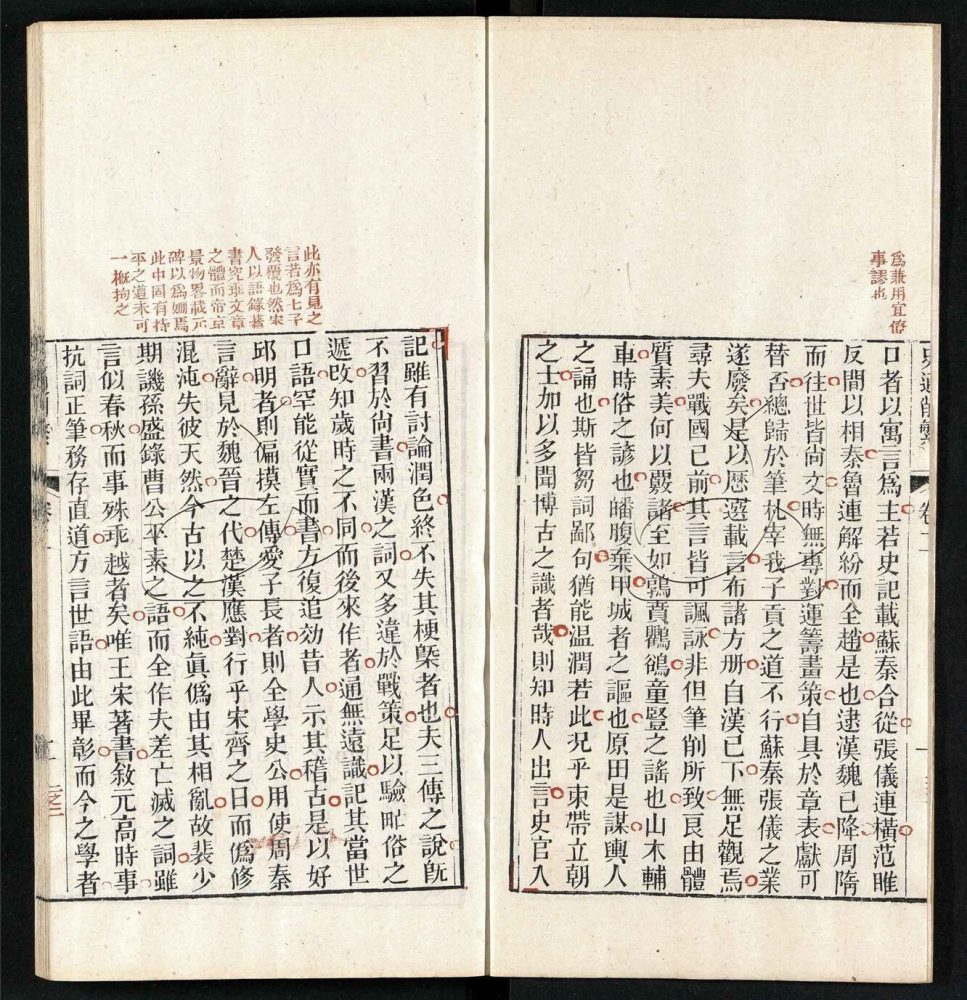 為兼用宜僚
事謬也
口者以寓言爲主若史記載蘇秦合從張儀連橫范睢
反間以相秦魯連解紛而全趙是也逮漢魏已降周隋
而往世皆尚文時無專對運籌畫策自具於章表獻可
替否總歸於筆札宰我子貢之道不行蘇秦張儀之業
遂廢矣是以歷選載言布諸方册自漢已下無足觀焉
尋夫戰國已前其言皆可諷詠非但筆削所致良由體
質素美何以覈諸至如鶉賁鸜鵒童豎之謠也山木輔
車時俗之諺也皤腹棄甲城者之謳也原田是謀輿人
之誦也斯皆芻詞鄙句猶能温潤若此况乎束帶立朝
之士加以多聞博古之識者哉則知時人出言史官入
此亦有見之
言若為七子
發覆也然宋
人以語錄著
書究乖文章
之體而帝京
景物畧載元
碑以為姍焉
此中固有持
平之道未可
一概拘之
記雖有討論潤色終不失其梗槩者也夫三傳之說旣
不習於尚書兩漢之詞又多違於戰策足以驗甿俗之
遞改知歲時之不同而後來作者通無遠識記其當世
口語罕能從實而書方復追効昔人示其稽古是以好
邱明者則偏摸左傳愛子長者則全學史公用使周秦
言辭見於魏晉之代楚漢應對行乎宋齊之日而僞修
混沌失彼天然今古以之不純眞僞由其相亂故裴少
期譏孫盛錄曹公平素之語而全作夫差亡滅之詞雖
言似春秋而事殊乖越者矣唯王宋著書敘元高時事
抗詞正筆務存直道方言世語由此畢彰而今之學者